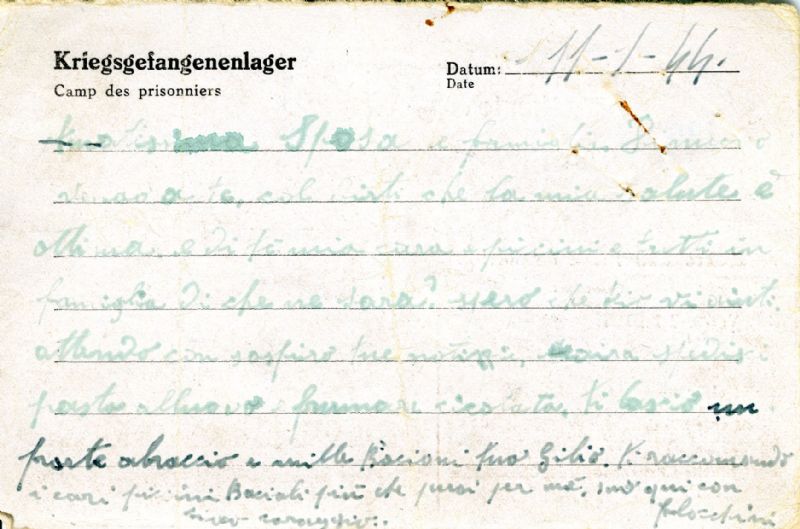 Kriegsgefangenenlager
Camp des prisonniers
Datum: 11-1-44.
Date
Sposa e famiglia
vengo a te, col dirti che la mia salute è
ottima, e di te mia cara e piccini e tutti in
famiglia di che ne sarà? spero che Dio vi aiuti.
attendo con sospiro tue notizie,
pasta fumare cicolata. Ti lascio un
forte abraccio e mille Bacioni tuo Gilio. Ti raccomando
i cari piccini Baciali più che puoi per me, sono qui con
coraggio.